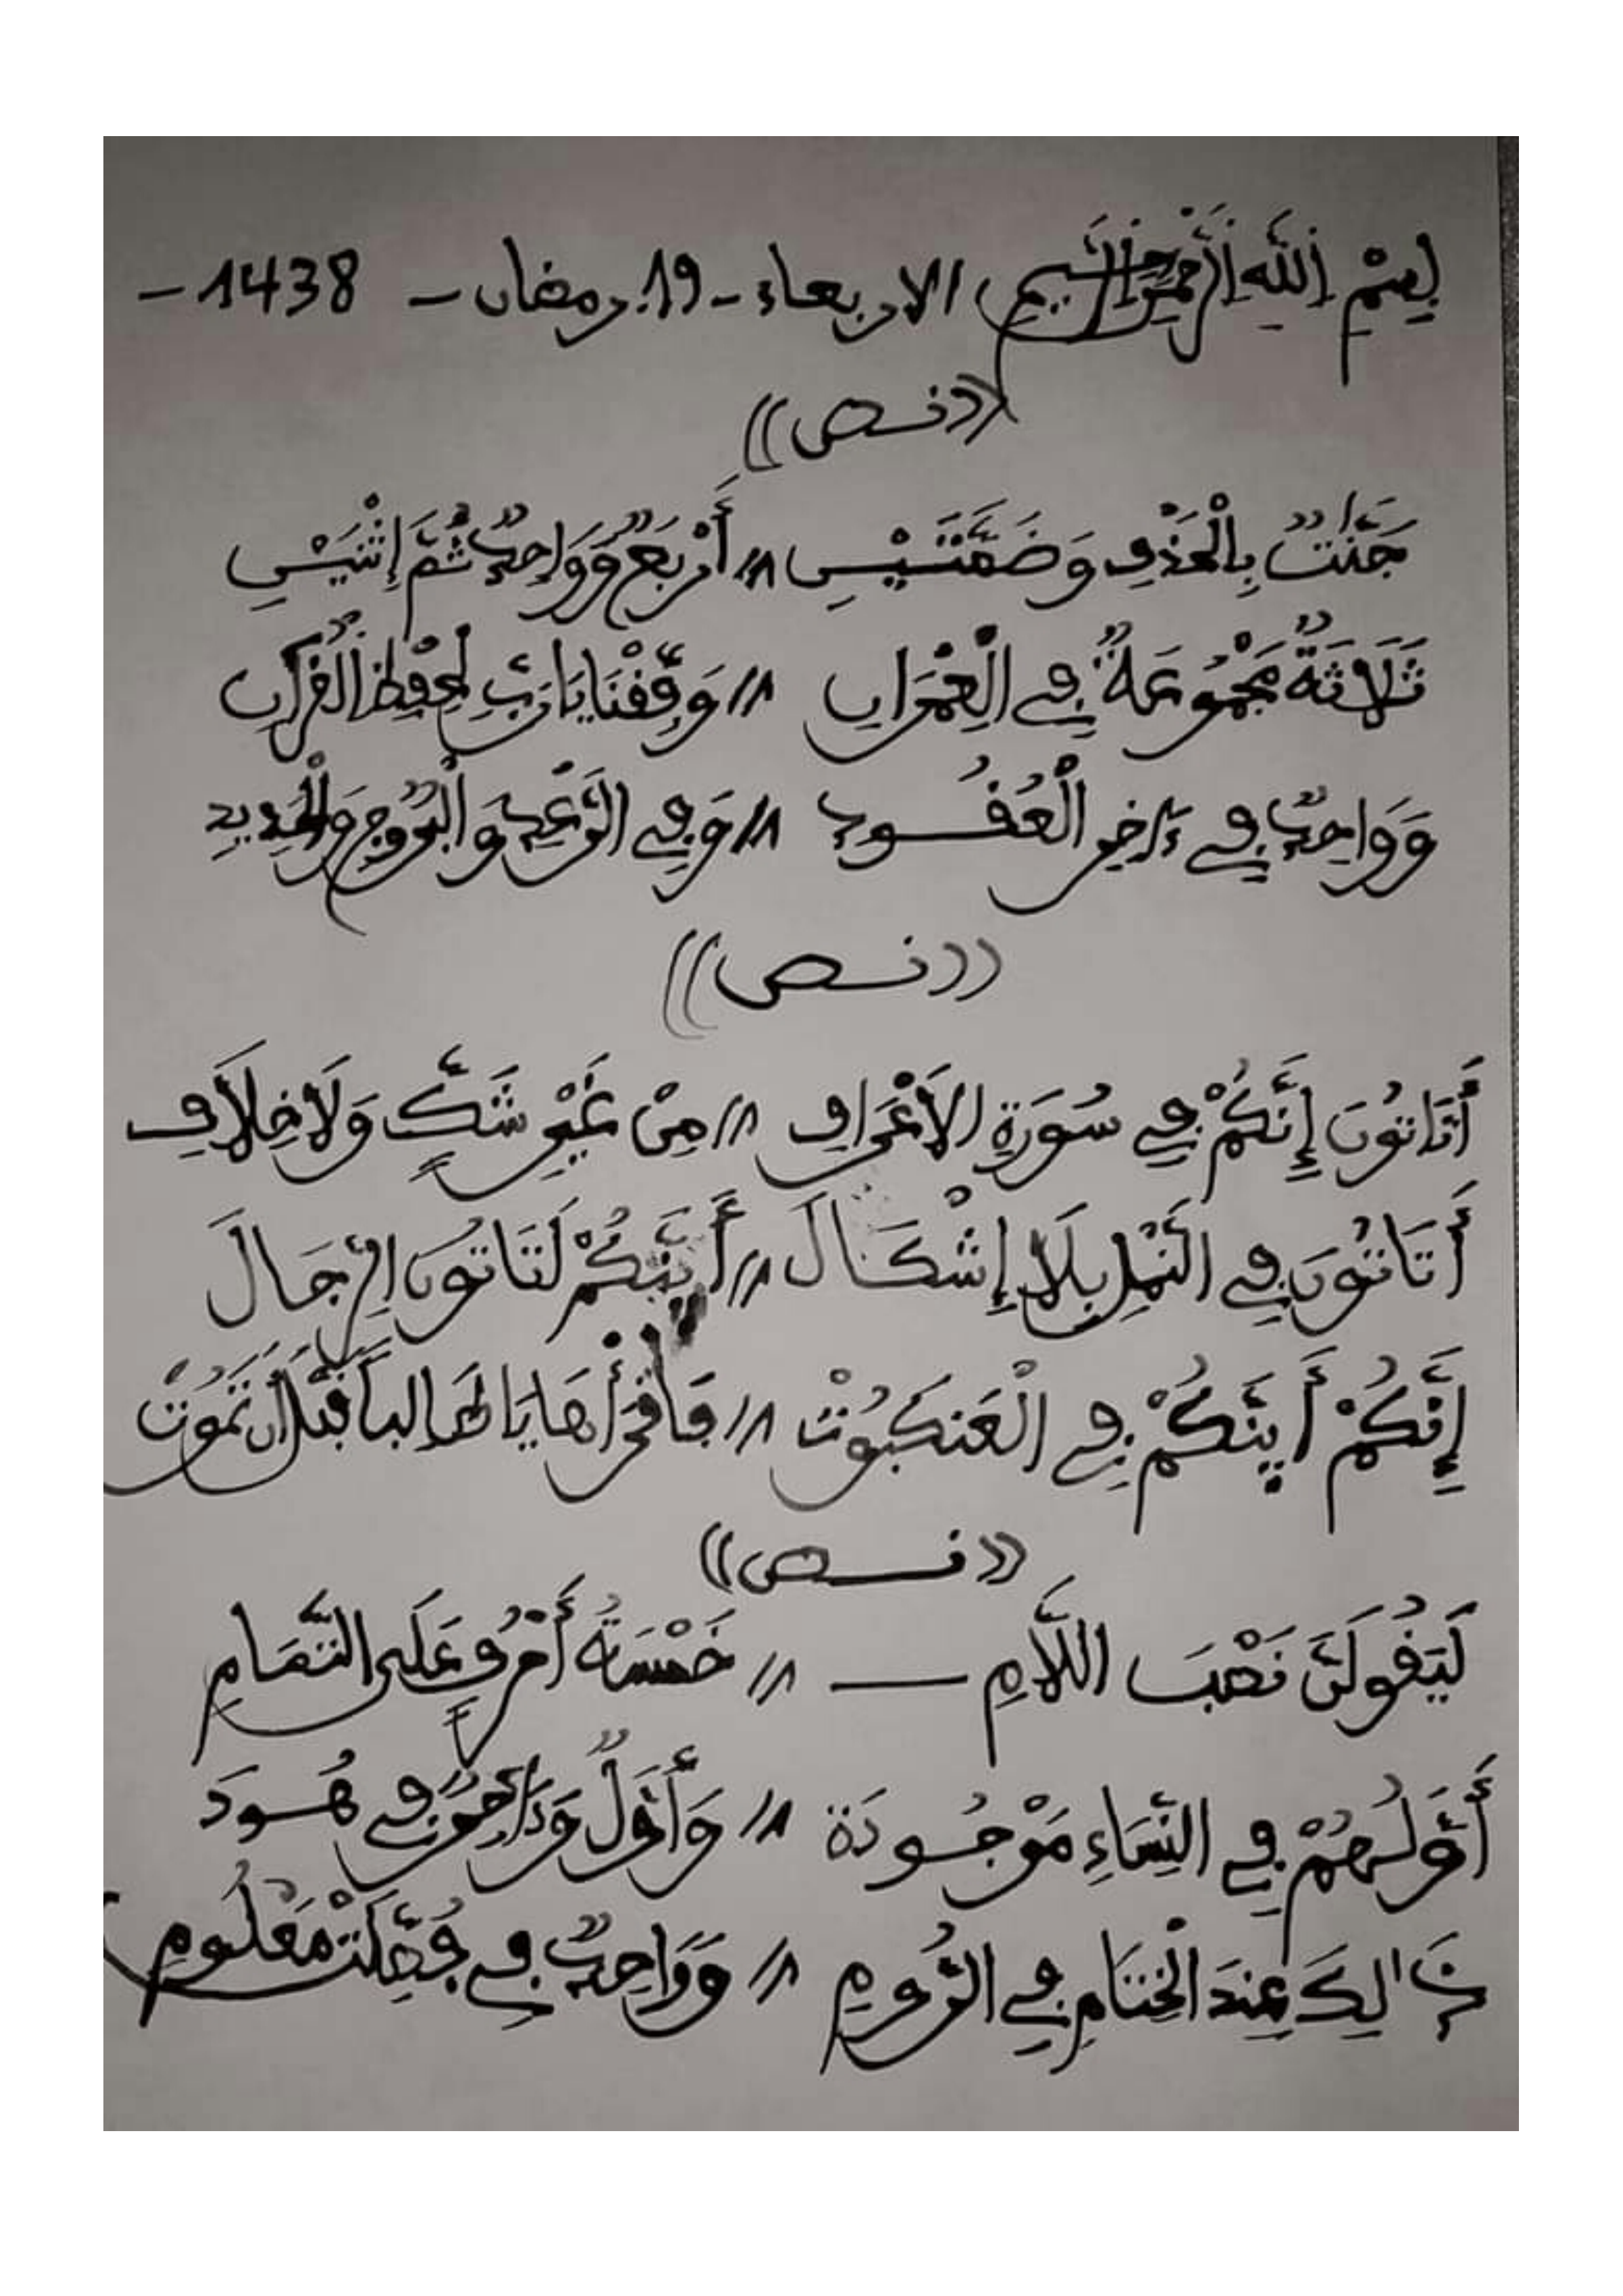 بِسْمِ اللَّهِ الرَّحْمَنِ الرَّحِيمِ الاربعاء - 19. رمضان - 1438 -
((نص))
جَنَّٰتٌ بِالْحَذْفِ وَضَمَّتَيْنِ // أَرْبَعٌ وَوَاحِدٌ ثُمَّ إِثْنَيْنِ
ثَلَاثَةٌ مَجْمُوعَةٌ فِي الْعِمْرَانِ // وَوَفِّقْنَا يَا رَبِّ لِحِفْظِ الْقُرْآنِ
وَوَاحِدٌ فِي ءَاخِرِ الْعُقُودِ // وَفِي الرَّعْدِ وَالْبُرُوجِ وَالْحَدِيدِ
((نص))
أَتَاتُونَ إِنَّكُمْ فِي سُورَةِ الْأَعْرَافِ // مِنْ غَيْرِ شَكٍّ وَلَا خِلَافِ
أَتَاتُونَ فِي النَّمْلِ بِلَا إِشْكَالَ // أَينَّكُمْ لَتَاتُونَ الرِّجَالَ
إِنَّكُمْ أَينَّكُمْ فِي الْعَنكَبُوتْ // فَاقْرَأْهَا يَا طَالِباً قَبْلَ أَن تَمُوتْ
((نص))
لَيَقُولَنَّ نَصْبَ اللَّامِ — // خَمْسَةُ أَحْرُفٍ عَلَى التَّمَامِ
أَوَّلُهُمْ فِي النِّسَاءِ مَوْجُودَة // وَأَوَّلٌ وَءَاخِرٌ فِي هُودَ
ذَٰلِكَ عِندَ الْخِتَامِ فِي الرُّومِ // وَوَاحِدٌ فِي فُصِّلَتْ مَعْلُومِ